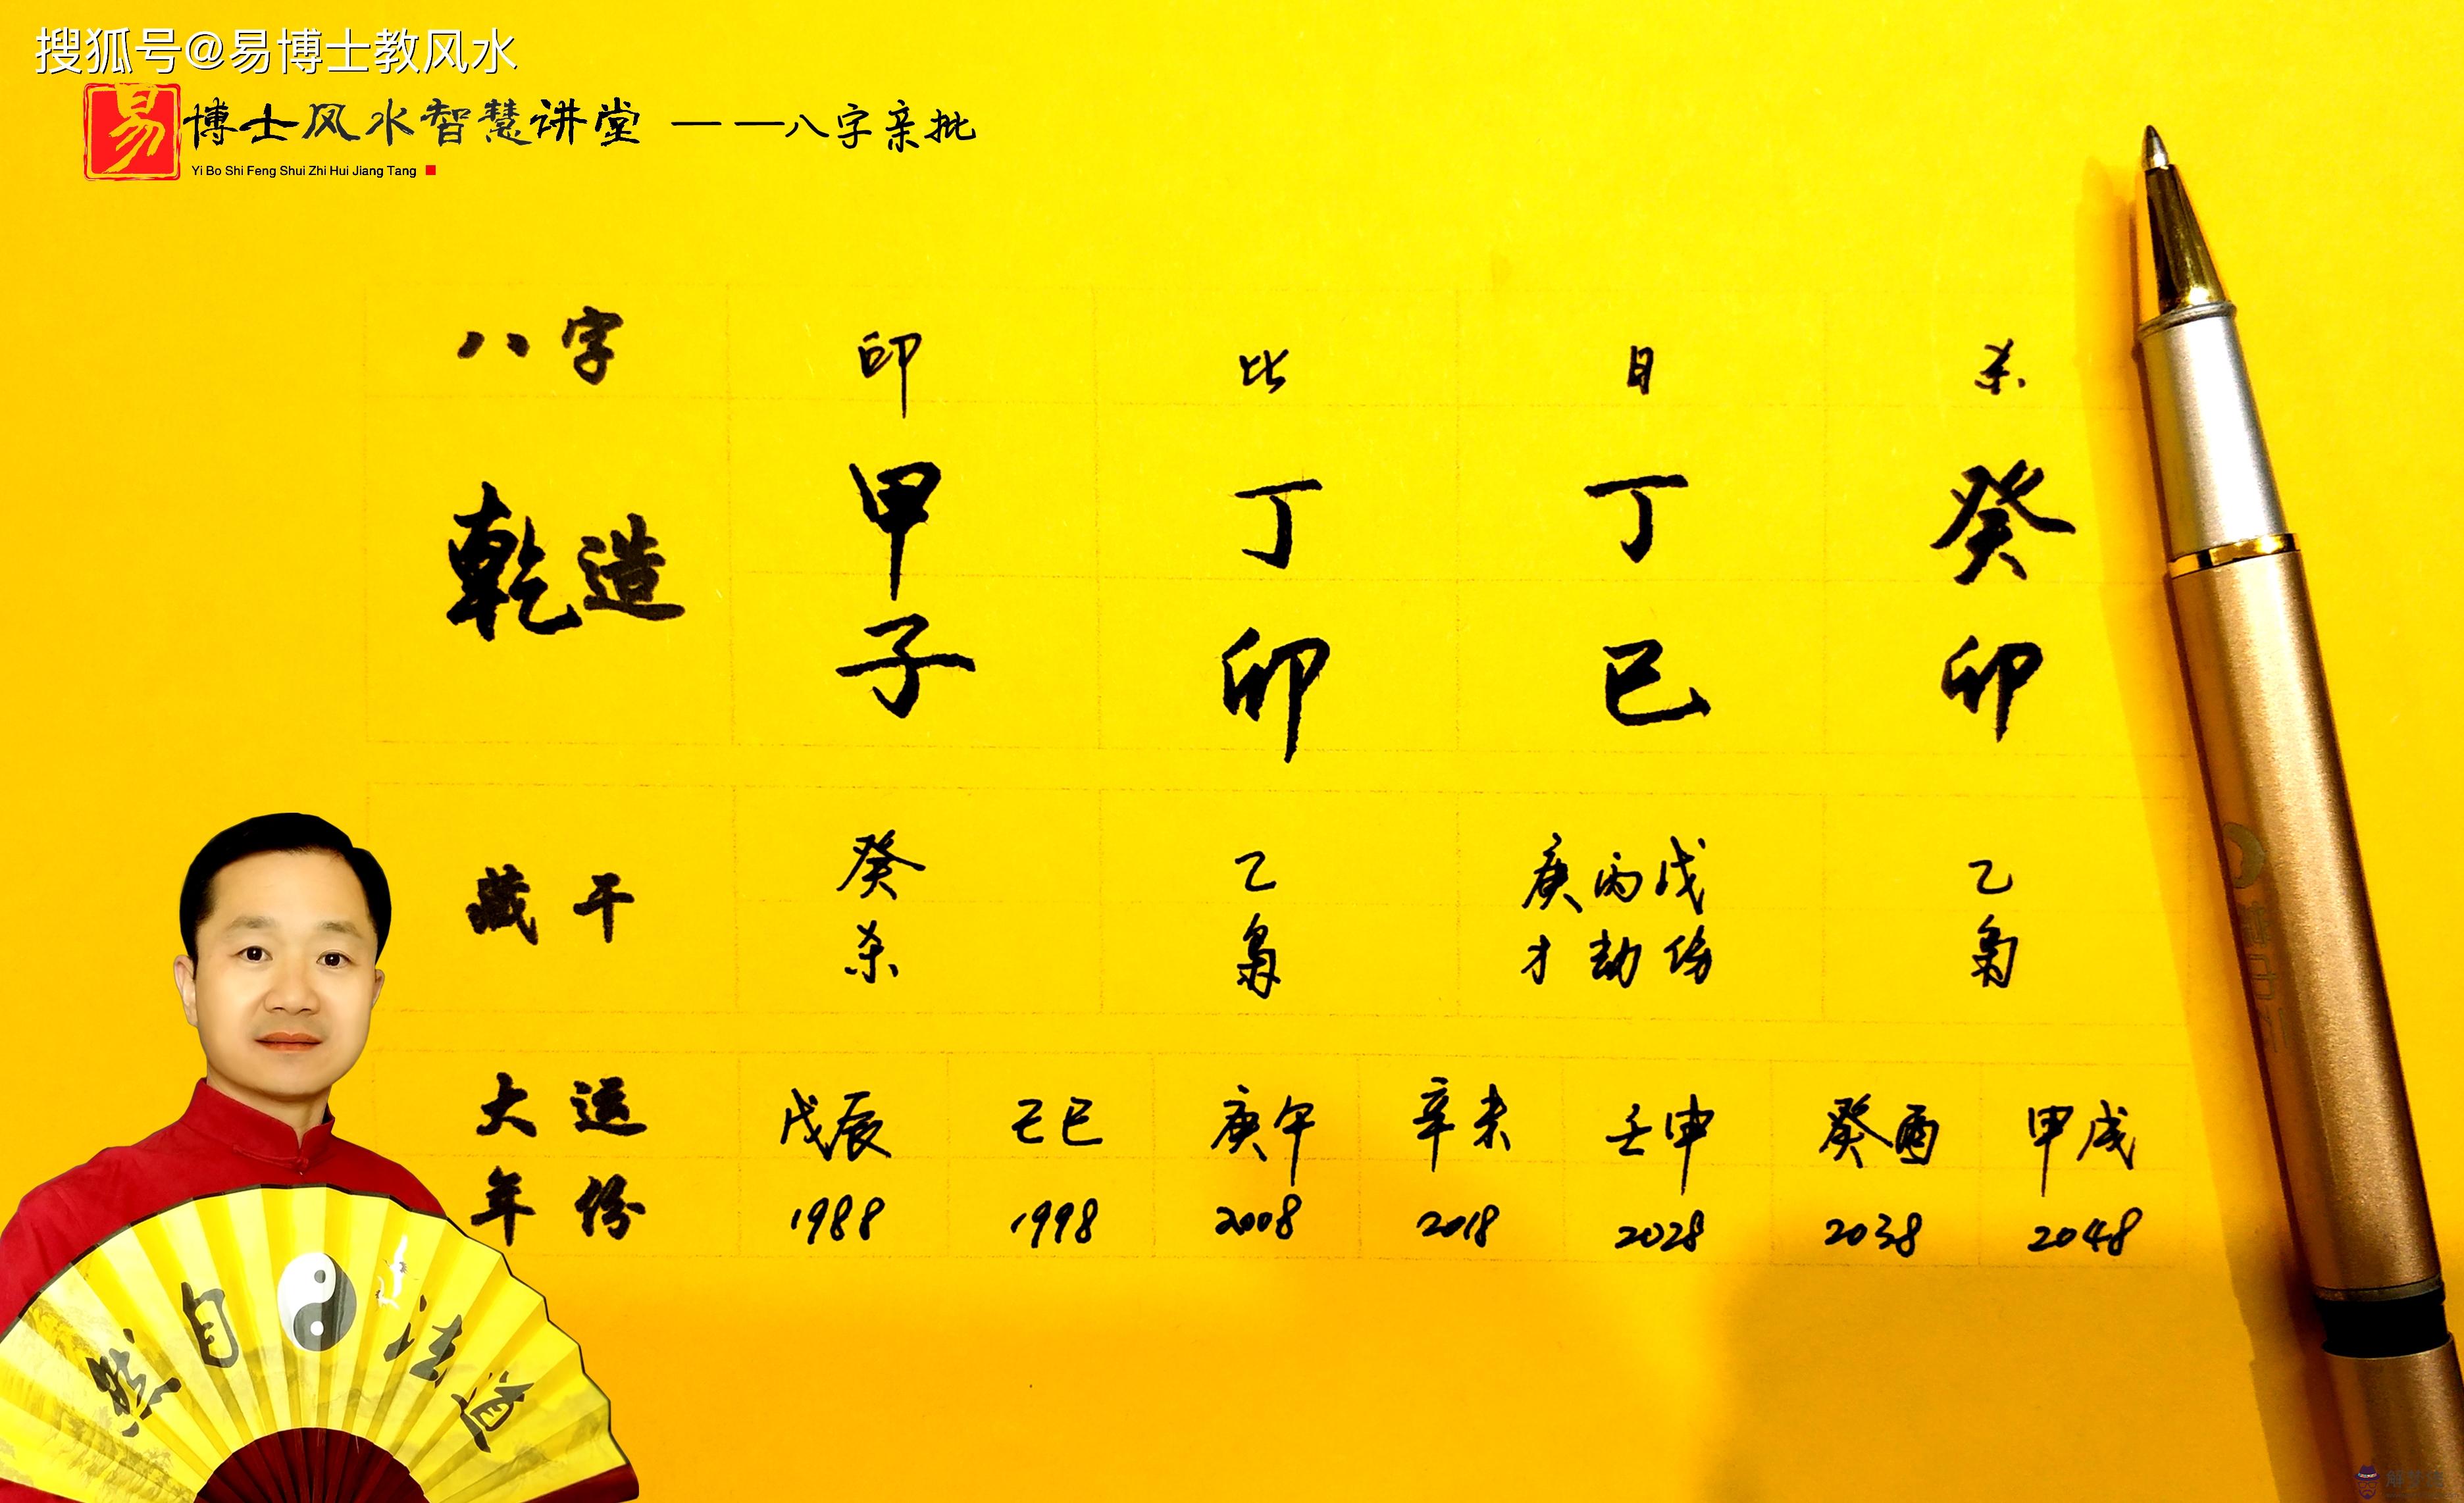 搜狐号@易博士教风水
易博士风水智慧讲堂 ——八字亲批
Yi Bo Shi Feng Shui Zhi Hui Jiang Tang
八字 印 比 日 杀
乾造 甲 丁 丁 癸
子 卯 巳 卯
藏干 癸 乙 庚丙戊 乙
杀 枭 才劫伤 枭
大运 戊辰 己巳 庚午 辛未 壬申 癸酉 甲戌
年份 1988 1998 2008 2018 2028 2038 2048
然自法道